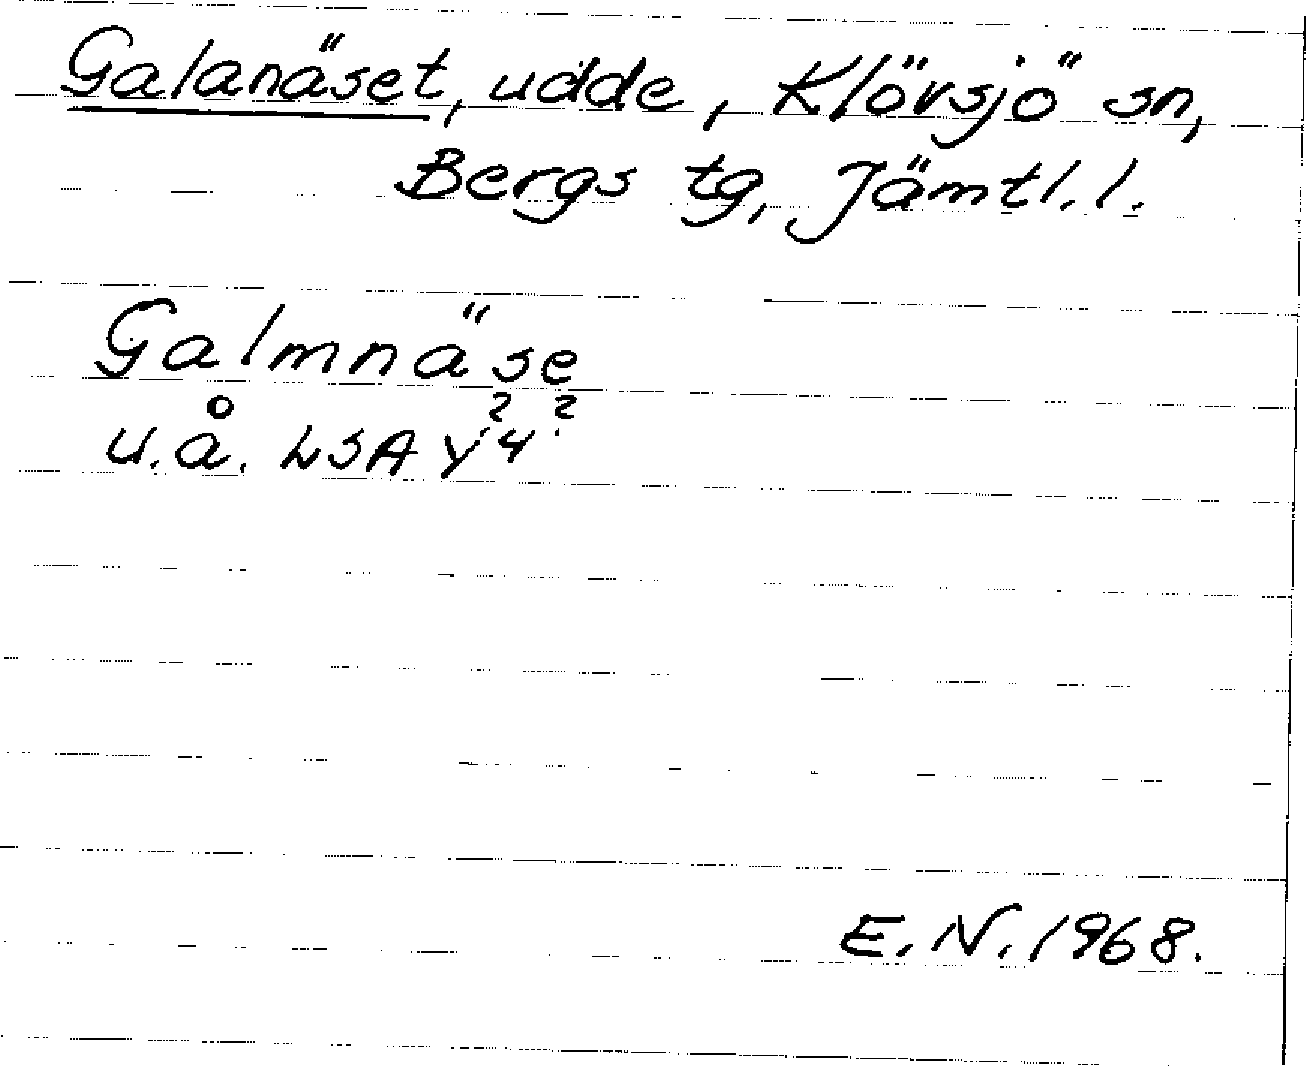 Galanäset, udde, Klövsjö sn,
Bergs tg, Jämtl. l.
Galmnäse
u.å. LSA Y²4²
E.N. 1968.